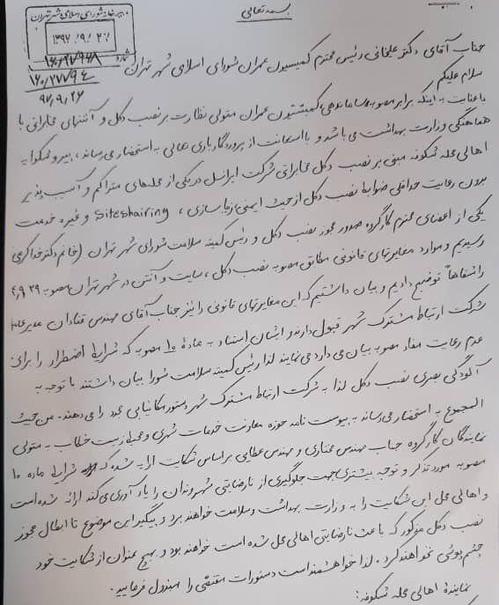 بسمه تعالی
دبیرخانه شورای اسلامی شهر تهران
۱۳۹۷/۹/۲۶
شماره ۱۶۰/۲۷۷۹۶۸
۱۶۰/۲۷۷۹۶۰
۹۷/۹/۲۶
جناب آقای دکتر علیخانی رئیس محترم کمیسیون عمران شورای اسلامی شهر تهران
سلام علیکم
با عنایت به اینکه برابر مصوبه ساماندهی کمیسیون عمران متولی نظارت بر نصب دکل و آنتنهای مخابراتی با
هماهنگی وزارت بهداشت می باشد و با استعانت از پروردگار باری تعالی به استحضار می رساند، پیرو
اهالی محله شکوفه مبنی بر نصب دکل مخابراتی شرکت ایرانسل در یکی از محله‌های متراکم و آسیب پذیر
بدون رعایت حداقلی ضوابط نصب دکل از حیث ایمنی زیباسازی، Siteshairing و غیره خدمت
یکی از اعضای محترم کارگروه صدور مجوز نصب دکل و رئیس کمیته سلامت شورای شهر تهران (خانم دکتر خداکرمی
رسیدیم و موارد مغایرتهای قانونی مطابق مصوبه نصب دکل، سایت و آنتن در شهر تهران مصوبه
را شفاهاً توضیح دادیم و بیان داشتیم که این مغایرتهای قانونی را نیز جناب آقای مهندس قنادان مدیرعامل
شرکت ارتباط مشترک شهر قبول دارند و ایشان استناد به ماده ۱۰ مصوبه که شرایط اضطرار را برای
عدم رعایت مفاد مصوبه بیان می دارد می نمایند لذا رئیس کمیته سلامت شورا بیان داشتند با توجه به
آلودگی بصری نصب دکل لذا به شرکت ارتباط مشترک شهر دستور مکانیابی مجدد را می دهند. من حیث
المجموع به استحضار می رساند به پیوست نامه حوزه معاونت خدمات شهری و محیط زیست خطاب به متولی
نمایندگان کارگروه جناب مهندس مختاری و مهندس عطایی بر اساس شکایت ارایه شده که شرایط ماده ۱۰
مصوبه مورد تذکر و توجه بیشتری جهت جلوگیری از نارضایتی شهروندان را یادآوری می کند ارائه شده است
و اهالی محل این شکایت را به وزارت بهداشت و سلامت خواهند برد و پیگیر این موضوع تا ابطال مجوز
نصب دکل مذکور که باعث نارضایتی اهالی محل شده است خواهند بود و به هیچ عنوان از شکایت خود
چشم پوشی نخواهند کرد. لذا خواهشمند است دستورات مقتضی را مبذول فرمایید.
نماینده اهالی محله شکوفه: